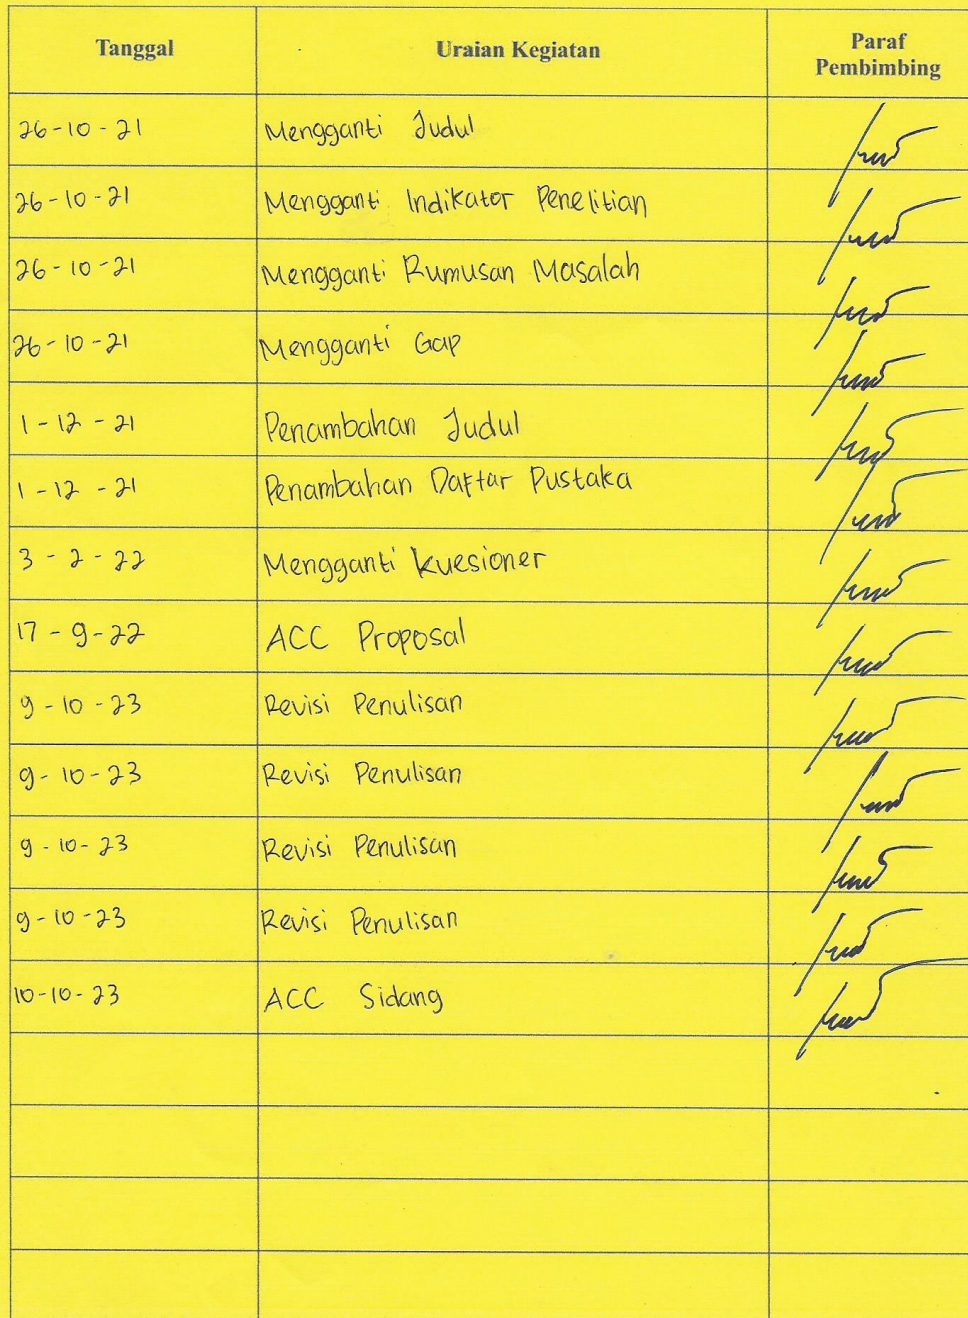 Tanggal Uraian Kegiatan Paraf
Pembimbing
26-10-21 Mengganti Judul
26-10-21 Mengganti Indikator Penelitian
26-10-21 Mengganti Rumusan Masalah
26-10-21 Mengganti Gap
1-12-21 Penambahan Judul
1-12-21 Penambahan Daftar Pustaka
3-2-22 Mengganti kuesioner
17-9-22 ACC Proposal
9-10-23 Revisi Penulisan
9-10-23 Revisi Penulisan
9-10-23 Revisi Penulisan
9-10-23 Revisi Penulisan
10-10-23 ACC Sidang